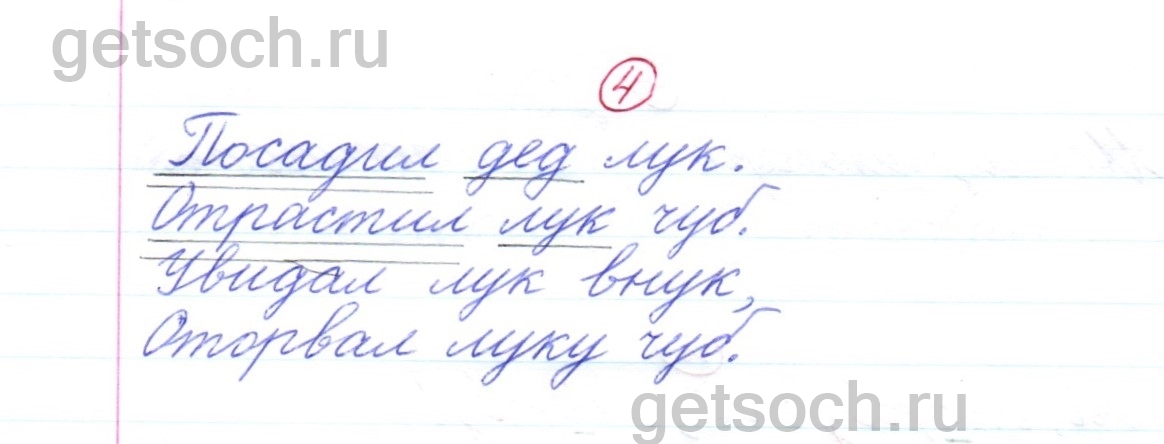 getsoch.ru
4
Посадил дед лук.
Отрастил лук чуб.
Увидал лук внук,
Оторвал луку чуб.
getsoch.ru